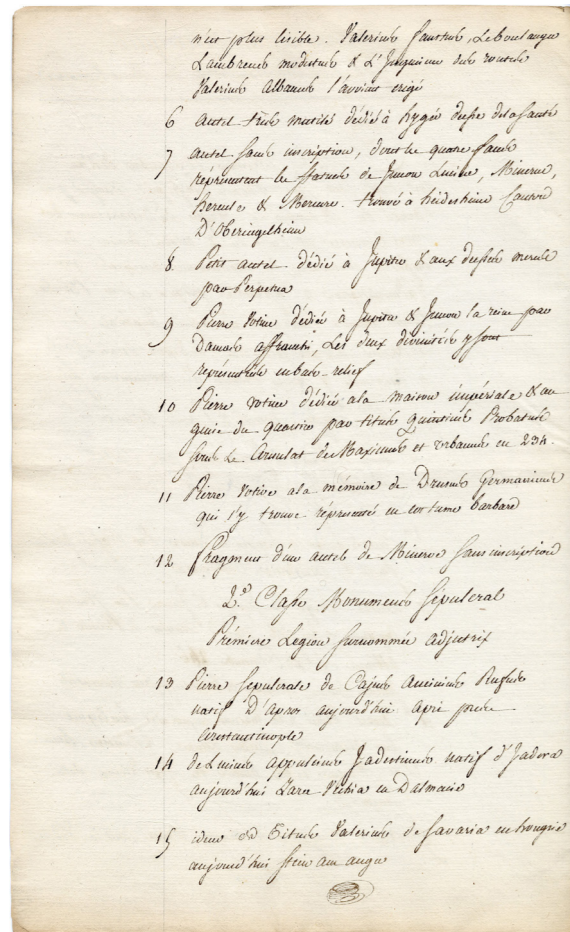 n'est plus lisible. Valerius faustus, Le boulanger
Lambreus modestus & L'Ingenieur des routes
Valerius Albanus l'avoient erigé
6 autel très mutilé dédié à hygée deesse de la santé
7 autel sans inscription, dont les quatre faces
réprésentent les statues de Junon Lucine, Minerve,
hercule & Mercure. trouvé à heidesheim Canton
D'Oberingelheim
8. Petit autel dédié à Jupiter & aux deesses
par Perpetua
9 Pierre Votive dédiée à Jupiter & Junon la reine par
Damas affranchi, Les deux divinités y sont
représentées en bas-relief
10 Pierre votive dédiée a la maison impériale & au
genie du quartier par titus Quintius Probatus
sous Le Consulat de Maximus et urbanus en 234.
11 Pierre Votive a la mémoire de Drusus Germanicus
qui s'y trouve réprésenté en costume barbare
12 fragment d'un autel de Minerve sans inscription
2.e Classe Monumens Sépulcral
Prémiere Legion surnommée adjutrix
13 Pierre Sepulcrale de Cajus Rufus
natif D'Apros aujourd'hui Apri près
Constantinople
14 de Lucius Jadestinus natif d'Jadera
aujourd'hui Zara Vechia en Dalmatie
15 idem de Titus Valerius de Savaria en hongrie
aujourd'hui stein am anger